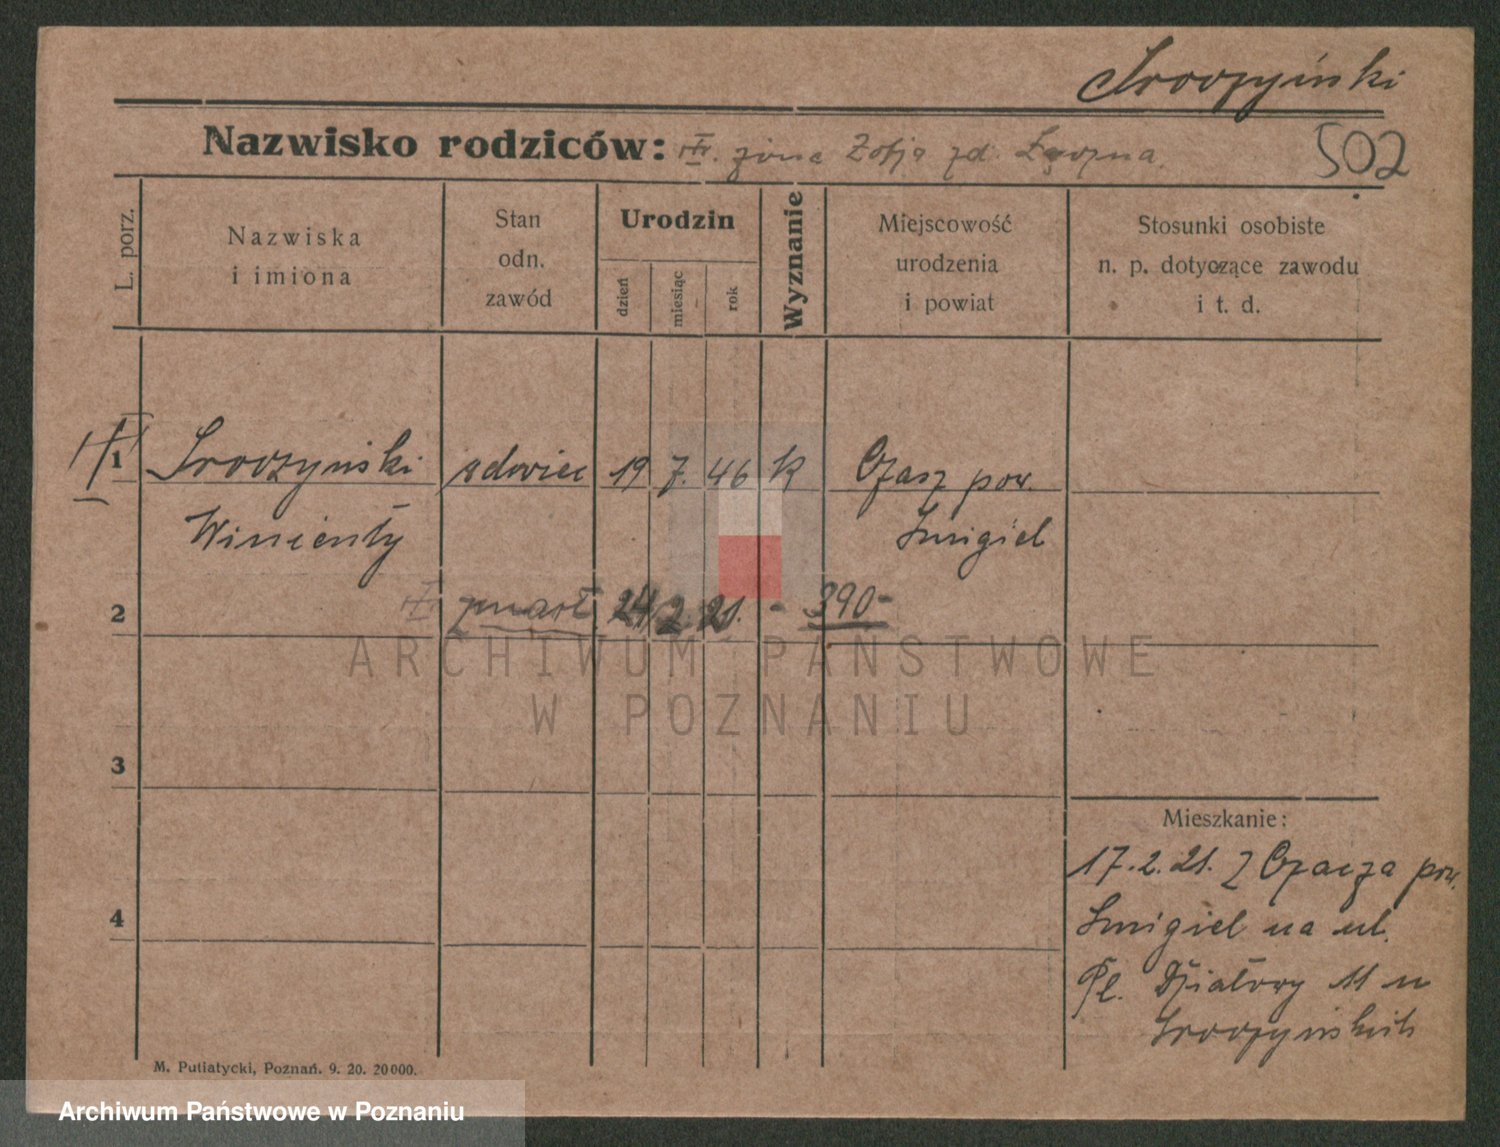 Sroczyński
Nazwisko rodziców: żona Zofja zd. Łęczna.
502
L. porz.
Nazwiska
i imiona
Stan
odn.
zawód
Urodzin
dzień
miesiąc
rok
Wyznanie
Miejscowość
urodzenia
i powiat
Stosunki osobiste
n. p. dotyczące zawodu
i t. d.
1 Sroczyński wdowiec 19 7. 46 k Czasz pow.
Wincenty Śmigiel
2 zmarł 24 2. 21. - 390-
ARCHIWUM PAŃSTWOWE
W POZNANIU
3
Mieszkanie:
17.2.21. Z Czacza pow.
4
Śmigiel na ul.
Pl. Działowy 11 u
Sroczyńskich
M. Putiatycki, Poznań. 9. 20. 20000.
Archiwum Państwowe w Poznaniu